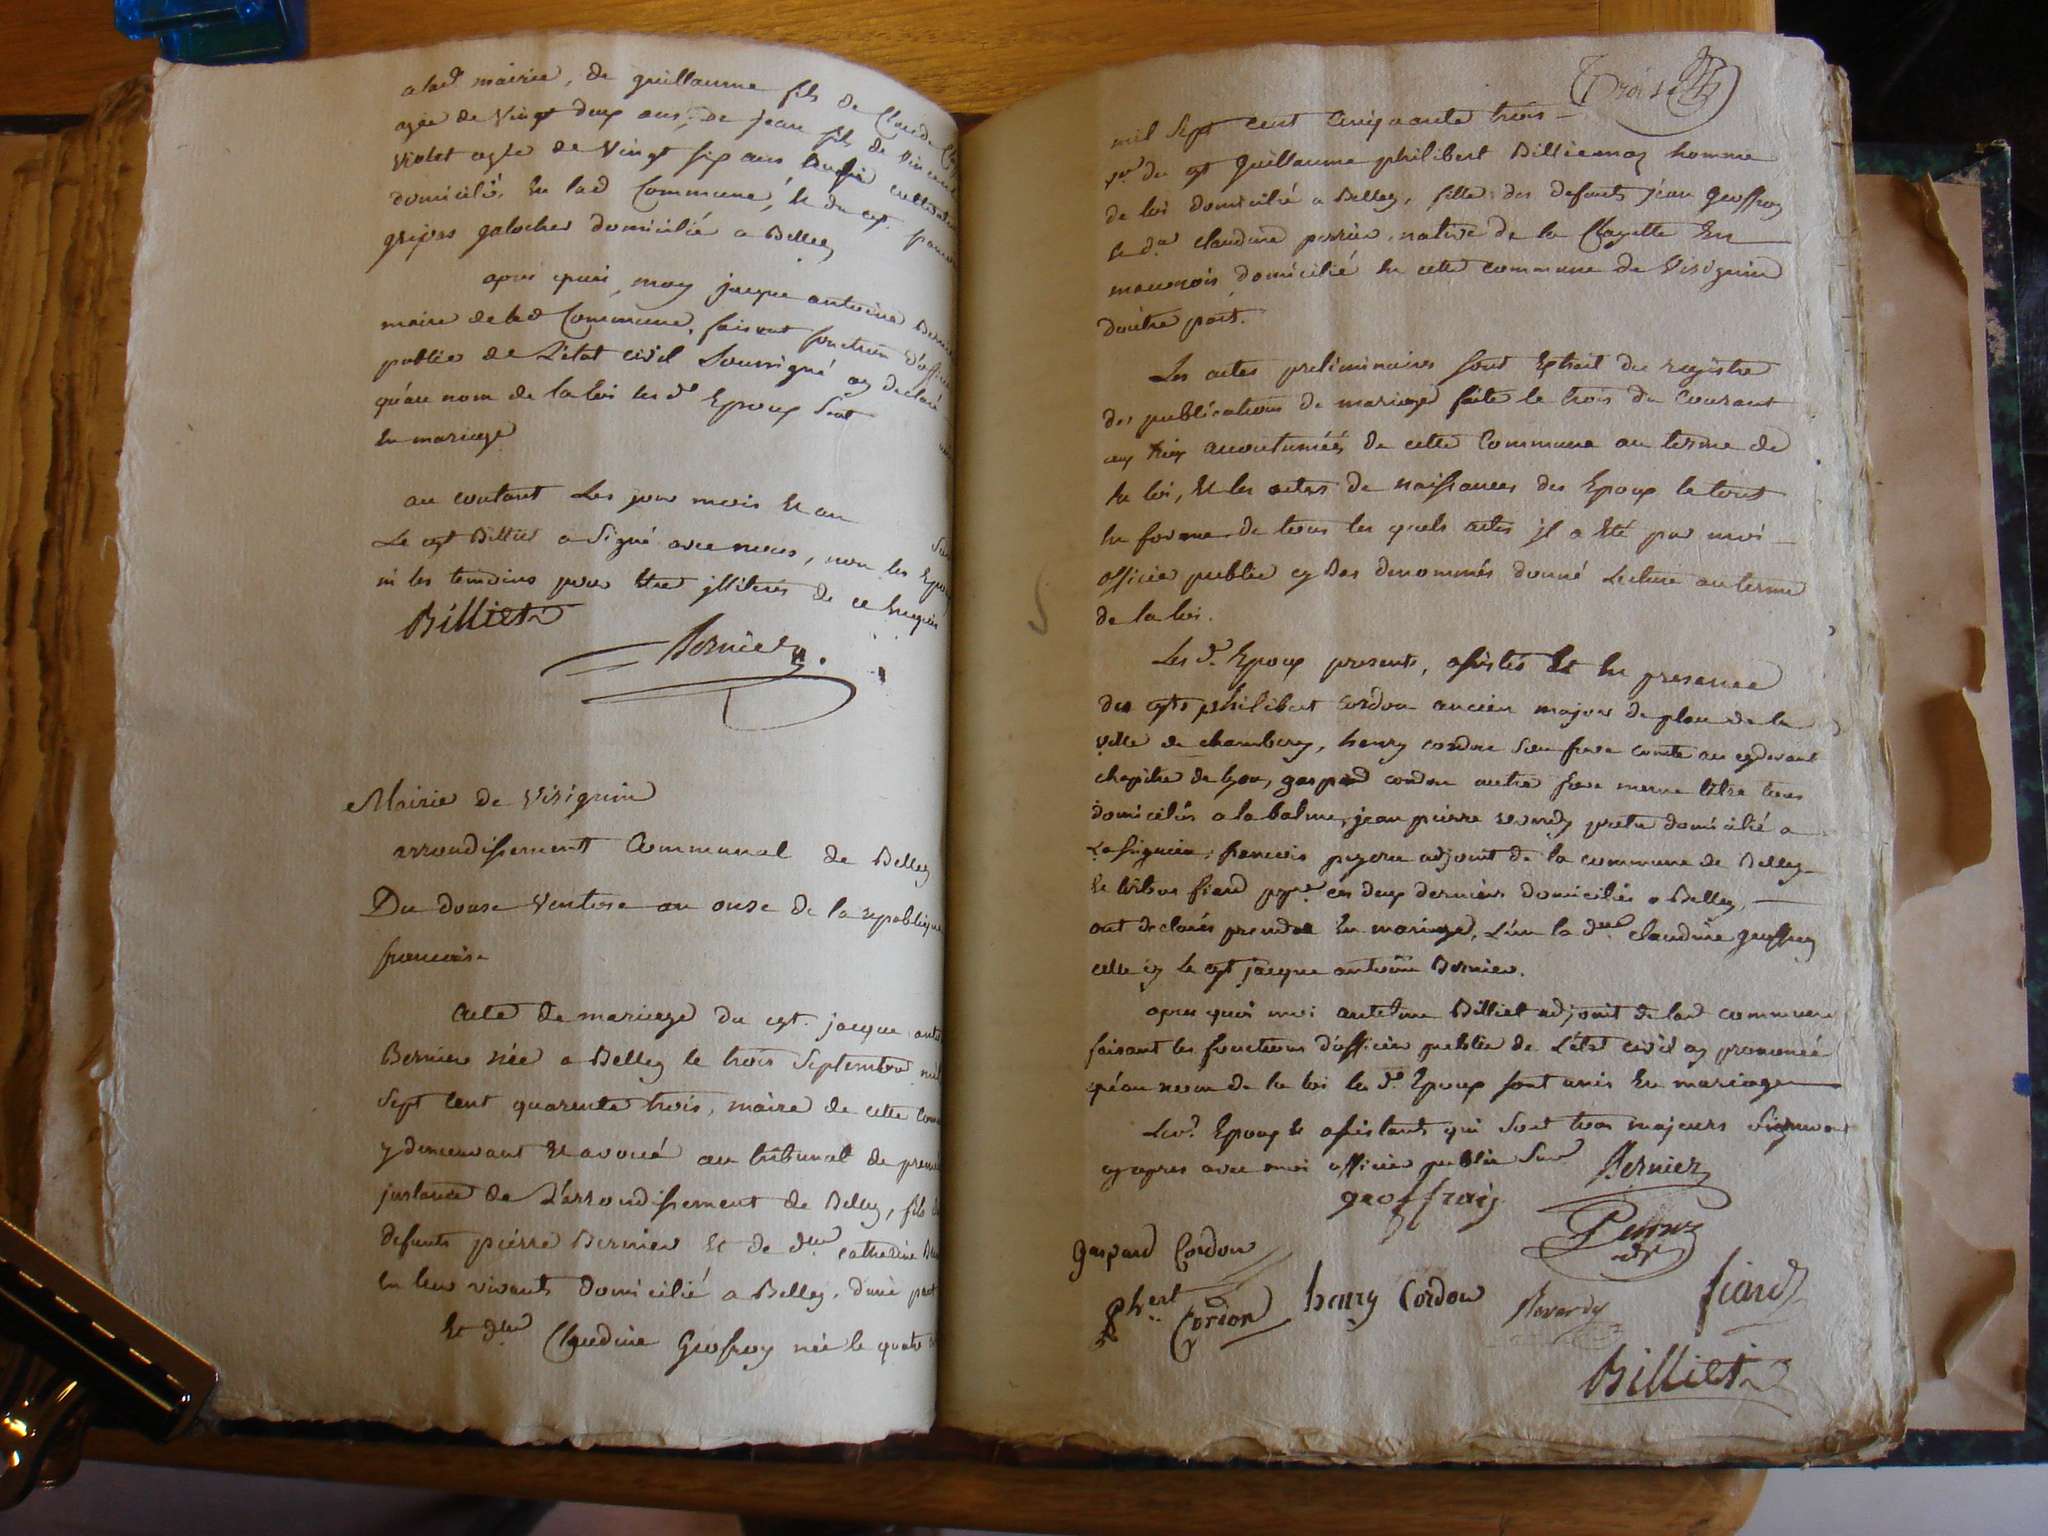 a lad mairie, de guillaume fils de Claude
agée de Vingt deux ans, de jean fils de Vincent
Violet agée de Vingt six ans tous cultivateurs
domiciliés en lad Commune, et du cyt.
galochet domicilié a Belley
apres quoi, moy jacque antoine Bernier
maire de lad Commune, faisant fonction d'officier
public de L'état civil Soussigné ay declaré
qu'au nom de la loi les d. Epoux Sont
En mariage
au contant Les jour mois et an
Le cyt Billiet a Signé avec nous, non les Epoux
ni les temoins pour Etre illitérés de ce Enquis
Billiet
Bernier
Mairie de Virignin
arrondissement Communal de Belley
Du douse Ventose an onse de la republique
francaise
Acte de mariage du cyt. jacque
Bernier née a Belley le trois Septembre mil
Sept Cent quarente trois, maire de cette
y demeurant et avoué au tribunal de
jnstance de L'arrondissement de Belley, fils
defunts pierre Bernier et de dme catherine
En leur vivants domicilié a Belley, d'une part
Et dme Claudine Geofroy née le quatre
Trois
mil Sept cent Cinquante trois
vve du cyt Guillaume philibert Billiemaz homme
de loi domicilié a Belley, fille des defunts jean Geoffroy
et de claudine perrier, native de la Clayette En
maconois domicilié en cette commune de Virignin
d'autre part.
Les actes preliminaires sont Extrait du registre
des publications de mariage faite le trois du Courant
aux lieux acoutumées de cette Commune au terme de
la loi, et les actes de naissances des Epoux le tout
En forme de tous les quels actes jl a été par moi
officier public cy Des denommés donné Lecture au terme
de la loi.
Les d. Epoux presents, assistés et En presence
des cyts philibert Cordon ancien major de place de la
ville de chambery, henry cordon son frere comte au cy devant
chapitre de lyon, gaspard cordon autre frere meme titre tous
domiciliés a la balme, jean pierre reverdy pretre domicilié a
francois adjoint de la commune de Belley
fiard ces deux derniers domiciliés a Belley,
ont declarés prendre En mariage, L'un la dme claudine geoffroy
celle cy le cyt jacque antoine Bernier.
apres quoi moi antelme Billiet adjoint de lad commune
faisant les fonctions d'officier public de L'état civil ay prononcé
qu'au nom de la loi les d. Epoux sont unis En mariage
Les d. Epoux et assistants qui sont tous majeurs Signeront
cy apres avec moi officier public Sus. Bernier
geoffroy
Gaspard Cordon
Phert Cordon henry Cordon Reverdy fiard
Billiet